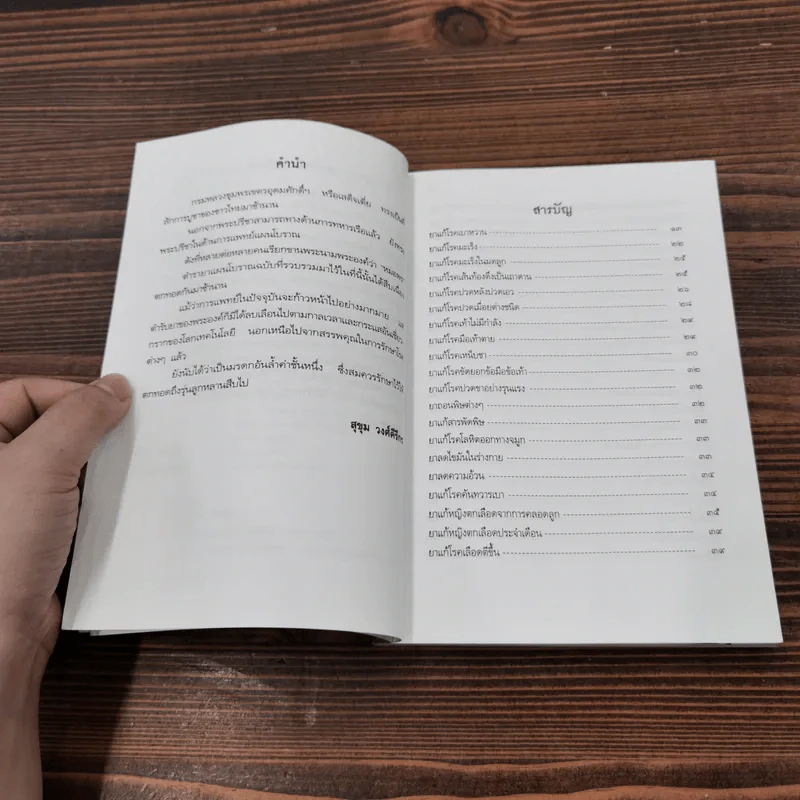 คำนำ
กรมหลวงชุมพรเขตรอุดมศักดิ์ฯ หรือเสด็จเตี่ย ทรงเป็นที่
สักการบูชาของชาวไทยมาช้านาน
นอกจากพระปรีชาสามารถทางด้านการทหารเรือแล้ว ยังทรง
พระปรีชาในด้านการแพทย์แผนโบราณ
ดังที่หลายต่อหลายคนเรียกขานพระนามพระองค์ว่า
ตำรายาแผนโบราณฉบับที่รวบรวมมาไว้ในที่นี้นั้นได้สืบเนื่อง
ตกทอดกันมาช้านาน
แม้ว่าการแพทย์ในปัจจุบันจะก้าวหน้าไปอย่างมากมาย
ตำรับยาของพระองค์ก็มิได้ลบเลือนไปตามกาลเวลาและกระแสอันเชี่ยว
กรากของโลกเทคโนโลยี นอกเหนือไปจากสรรพคุณในการรักษาโรค
ต่างๆ แล้ว
ยังนับได้ว่าเป็นมรดกอันล้ำค่าชิ้นหนึ่ง ซึ่งสมควรรักษาไว้ให้
ตกทอดถึงรุ่นลูกหลานสืบไป
สุขุม
สารบัญ
ยาแก้โรคเบาหวาน ๑๓
ยาแก้โรคมะเร็ง ๒๒
ยาแก้โรคมะเร็งในมดลูก ๒๕
ยาแก้โรคเส้นท้องตึงเป็นเถาดาน ๒๕
ยาแก้โรคปวดหลังปวดเอว ๒๖
ยาแก้โรคปวดเมื่อยต่างชนิด ๒๘
ยาแก้โรคเท้าไม่มีกำลัง ๒๙
ยาแก้โรคมือเท้าตาย ๒๙
ยาแก้โรคเหน็บชา ๓๐
ยาแก้โรคขัดยอกข้อมือข้อเท้า ๓๒
ยาแก้โรคปวดชาอย่างรุนแรง ๓๒
ยาถอนพิษต่างๆ ๓๒
ยาแก้สารพัดพิษ ๓๓
ยาแก้โรคโลหิตออกทางจมูก ๓๓
ยาลดไขมันในร่างกาย ๓๓
ยาลดความอ้วน ๓๔
ยาแก้โรคคันทวารเบา ๓๔
ยาแก้หญิงตกเลือดจากการคลอดลูก ๓๕
ยาแก้หญิงตกเลือดประจำเดือน ๓๙
ยาแก้โรคเลือดตีขึ้น ๓๙